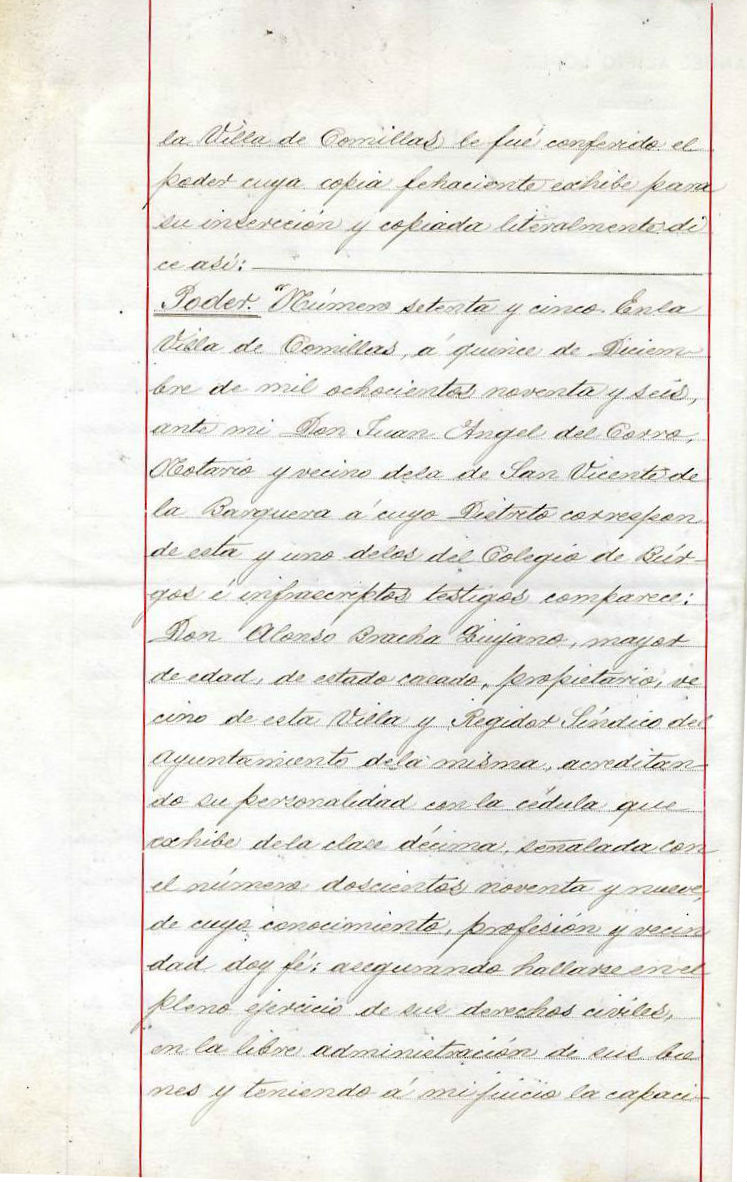 la Villa de Comillas le fué conferido el
poder cuya copia fehaciente exhibe para
su inserción y copiada literalmente di
ce así:
Poder. "Número setenta y cinco. En la
Villa de Comillas, á quince de Diciem-
bre de mil ochocientos noventa y seis,
ante mi Don Juan Angel del Corro,
Notario y vecino dela de San Vicente de
la Barquera á cuyo Distrito correspon
de esta y uno delos del Colegio de Búr-
gos é infraescriptos testigos comparece:
Don Alonso Bracha Quijano, mayor
de edad, de estado casado, propietario, ve
cino de esta Villa y Regidor Síndico del
Ayuntamiento dela misma, acreditan-
do su personalidad con la cédula que
exhibe dela clase décima, señalada con
el número doscientos noventa y nueve,
de cuyo conocimiento, profesión y vecin
dad doy fé; asegurando hallarse en el
pleno ejercicio de sus derechos civiles,
en la libre administración de sus bie
nes y teniendo á mi juicio la capaci-